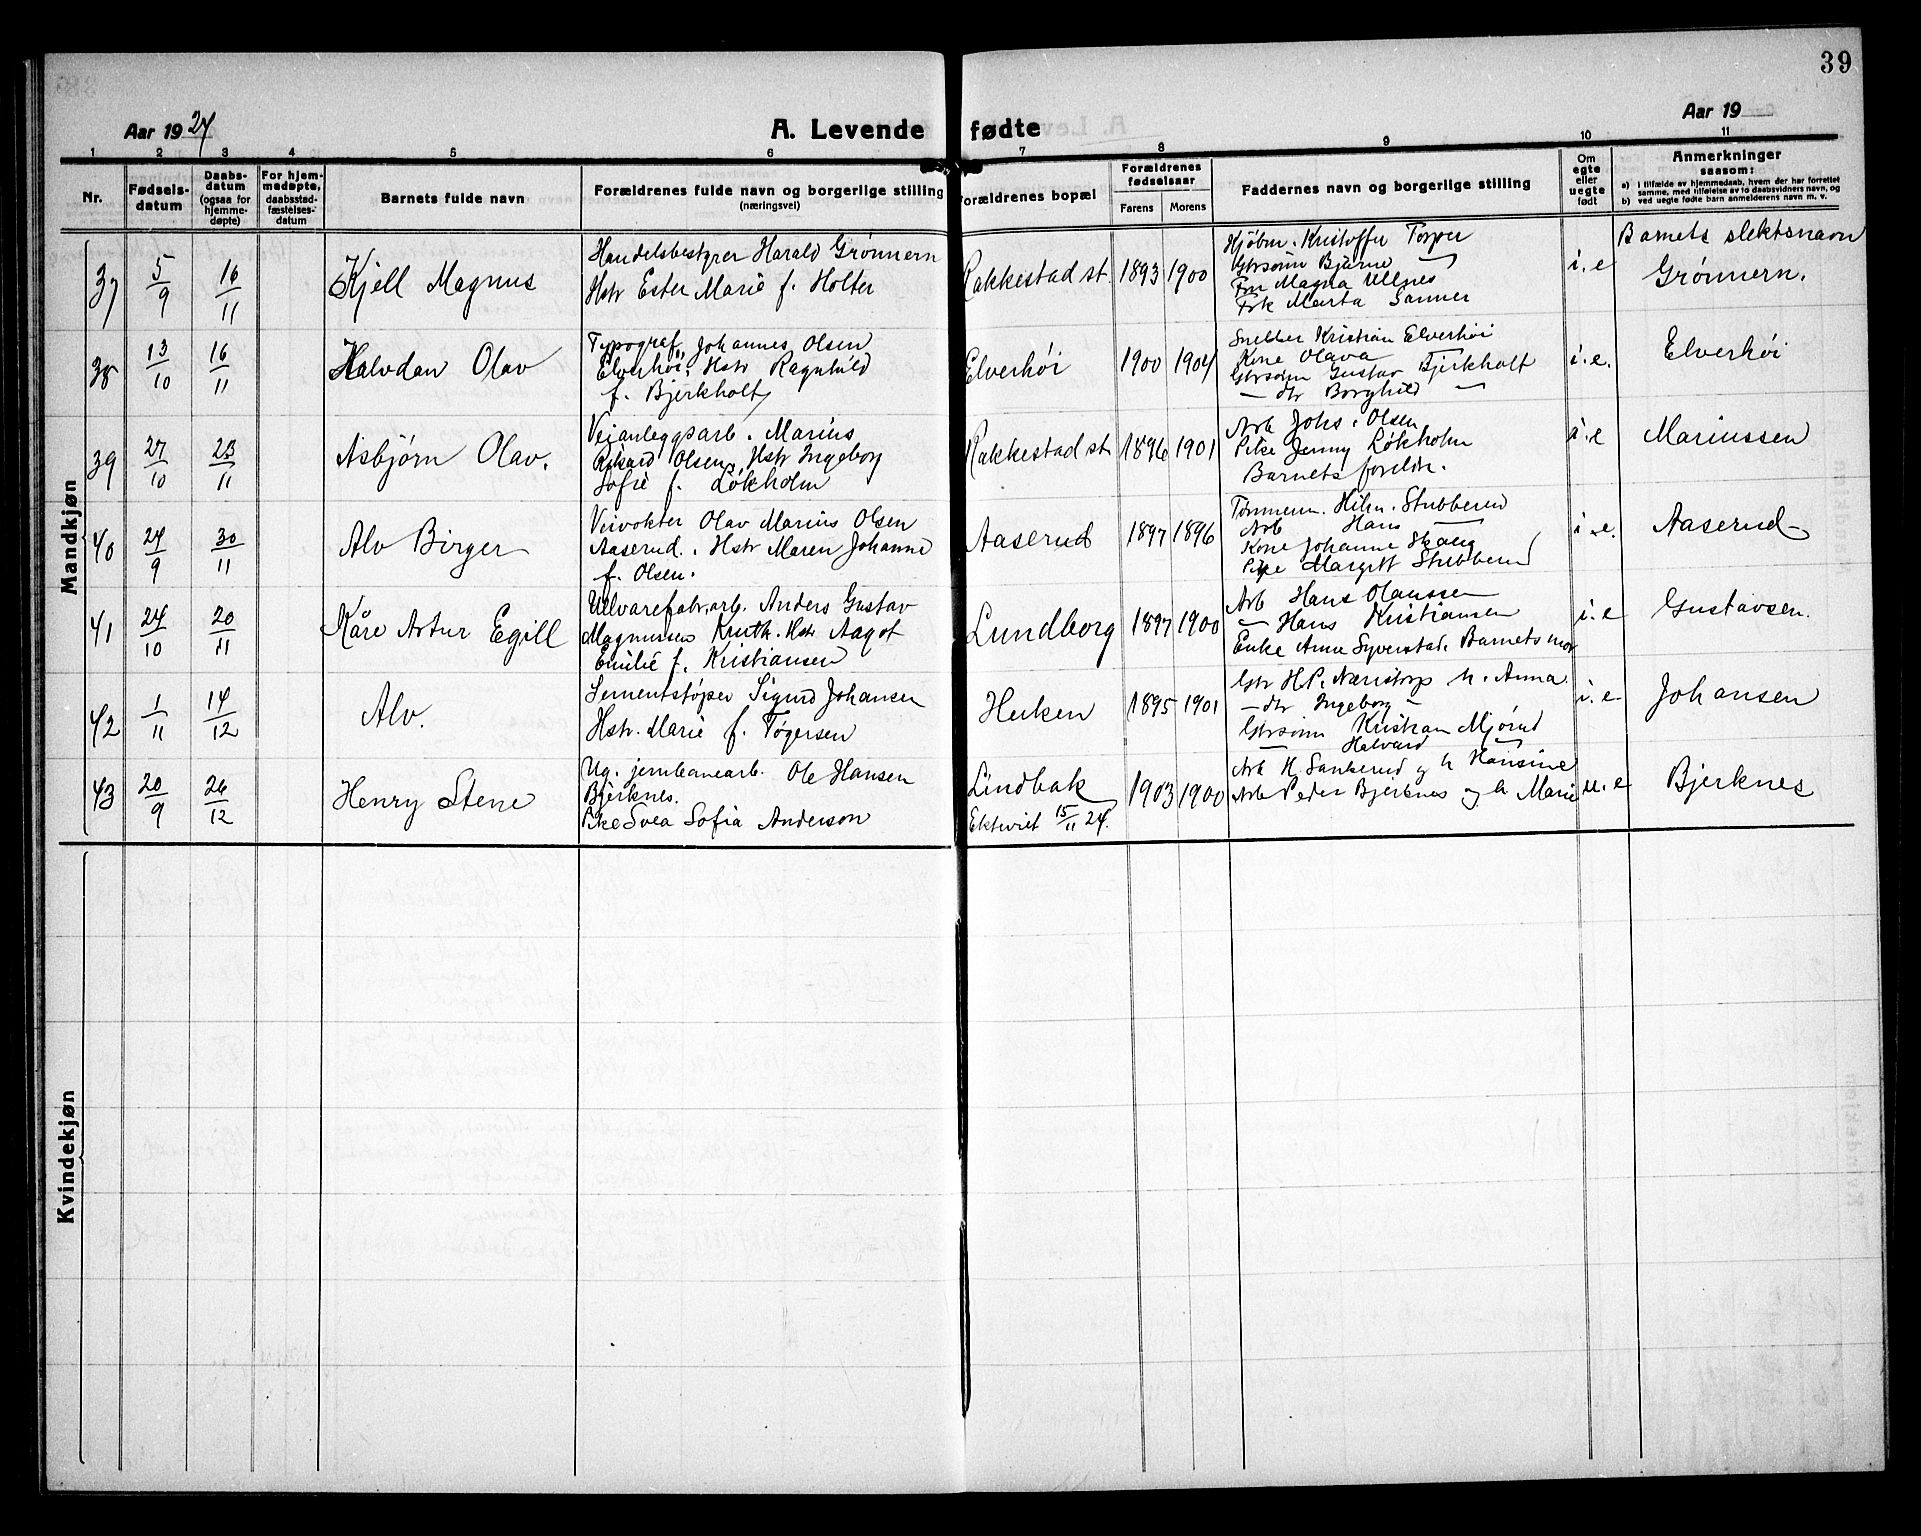 39
Aar 1924
A. Levende fødte
Aar 19
1 2 3 4 5 6 7 8 9 10 11
Nr.
Fødsels-
datum
Daabs-
datum
(ogsaa for
hjemme-
døpte)
For hjem-
medøpte,
daabsstad-
fæstelses-
datum
Barnets fulde navn
Forældrenes fulde navn og borgerlige stilling
(næringsvei)
Forældrenes bopæl
Forældrenes
fødselsaar
Farens Morens
Faddernes navn og borgerlige stilling
Om
egte
eller
uegte
født
Anmerkninger
saasom:
a) I tilfælde av hjemmedaab, hvem der har forrettet
samme, med tilføielse av to daabsvidners navn, og
b) ved uegte fødte barn anmelderens navn m. v.
Mandkjøn
37
5/9
16/11
Kjell Magnus
Handelsbestyrer Harald Grønnern
Hstr Ester Marie f. Holter
Rakkestad st.
1893 1900
Kristoffer Torper
Gbrsønn Bjarne —
Fru Magna Ullnes
Frk Marta Sanner
i. e
Barnets slektsnavn
Grønnern.
38
13/10
16/11
Halvdan Olav
Typograf Johannes Olsen
Elverhøi, Hstr Ragnhild
f. Bjerkholt
Elverhøi
1900 1904
Snekker Kristian Elverhöi
Kone Olava —
Gbrsønn Gustav Bjerkholt
— dtr Borghild —
i. e.
Elverhøi
39
27/10
23/11
Asbjørn Olav.
Veianlegsarb. Marius
Rikard Olsen, Hstr Ingeborg
Sofie f. Løkholm
Rakkestad st
1896 1901
Arb Johs. Olsen
Pike Jenny Løkholm
Barnets foreldre.
i. e
Mariussen
40
24/9
30/11
Alv Birger
Veivokter Olav Marius Olsen
Aaserud. Hstr Maren Johanne
f. Olsen.
Aaserud
1897 1896
Tømmerm. Hilm. Stubberud
Arb Hans —
Kone Johanne Skaug
Pike Margit Stubberud
i. e.
Aaserud
41
24/10
20/11
Kåre Artur Egill
Uldvarefabr.arb. Anders Gustav
Magnussen Knuth. Hstr Aagot
Emilie f. Kristiansen
Lundborg
1897 1900
Arb Hans Olaussen
— Hans Kristiansen
Enke Anne Syverstad. Barnets mor
i. e
Gustavsen.
42
1/11
14/12
Alv.
Sementstøper Sigurd Johansen
Hstr. Marie f. Tøgersen
Huken
1895 1901
Gbr H.P. Næristorp h. Anna
— dtr Ingeborg —
Gbrsønn Kristian Mjørud
— Halvard —
i. e
Johansen
43
20/9
26/12
Henry Stene
Ug. jernbanearb. Ole Hansen
Bjerknes.
Pike Svea Sofia Anderson
Lindbak
Ektviet 15/11 24.
1903 1900
Arb H. Sankerud og h Hansine
Arb Peder Bjerknes og h Marie
u. e
Bjerknes
Kvindekjøn